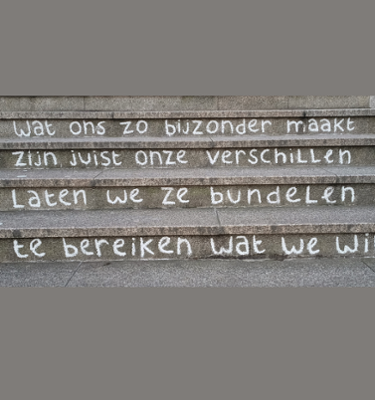 wat ons zo bijzonder maakt
zijn juist onze verschillen
Laten we ze bundelen
te bereiken wat we